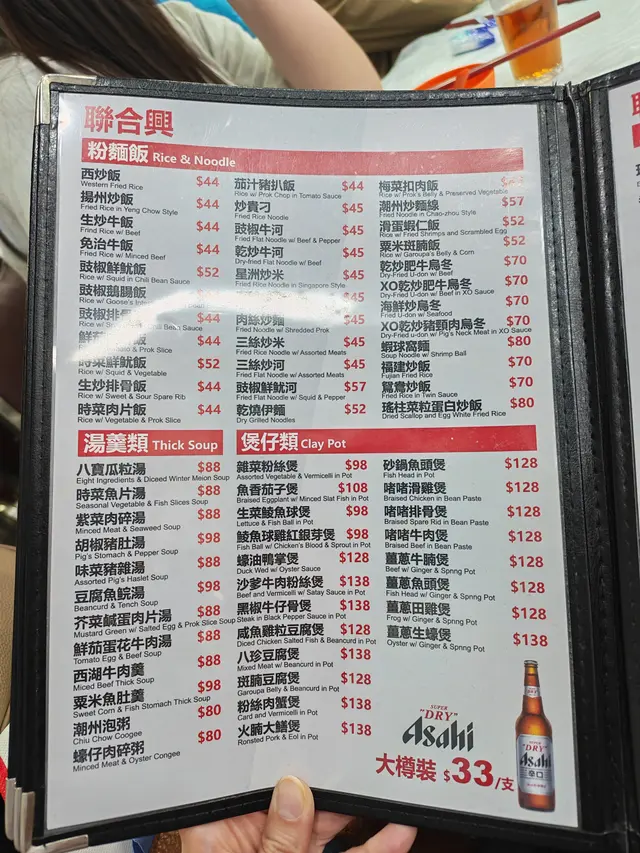 聯合興
粉麵飯 Rice & Noodle
西炒飯 $44
Western Fried Rice
揚州炒飯 $44
Fried Rice in Yeng Chow Style
生炒牛飯 $44
Frind Rice w/ Beef
免治牛飯 $44
Fried Rice w/ Minced Beef
豉椒鮮魷飯 $52
Rice w/ Squid in Chili Bean Sauce
豉椒鵝腸飯
Rice w/ Goose's
豉椒排骨
Bean Sauce
鮮
& Prok Slice
時菜鮮魷飯 $52
Rice w/ Squid & Vegetable
生炒排骨飯 $44
Rice w/ Sweet & Sour Spare Rib
時菜肉片飯 $44
Rice w/ Vegetable & Prok Slice
茄汁豬扒飯 $44
Rice w/ Prok Chop in Tomato Sauce
炒貴刁 $45
Fried Rice Noodle
豉椒牛河 $45
Fried Flat Noodle w/ Beef & Pepper
乾炒牛河 $45
Dry-fried Flat Noodle w/ Beef
星洲炒米 $45
Fried Rice Noodle in Singapore Style
肉絲炒麵 $45
Fried Noodle w/ Shredded Prok
三絲炒米 $45
Fried Rice Noodle w/ Assorted Meats
三絲炒河 $45
Fried Flat Noodle w/ Assorted Meats
豉椒鮮魷河 $57
Fried Flat Noodle w/ Squid & Pepper
乾燒伊麵 $52
Dry Grilled Noodles
梅菜扣肉飯
Rice w/ Prok's Belly & Preserved Vegetable
潮州炒麵線 $57
Fried Noodle in Chao-zhou Style
滑蛋蝦仁飯 $52
Rice w/ Fried Shrimps and Scrambled Egg
粟米斑腩飯 $52
Rice w/ Garoupa's Belly & Corn
乾炒肥牛烏冬 $70
Dry-Fried U-don w/ Beef
XO乾炒肥牛烏冬 $70
Dry-Fried U-don w/ Beef in XO Sauce
海鮮炒烏冬 $70
Fried U-don w/ Seafood
XO乾炒豬頸肉烏冬 $70
Dry-Fried u-don w/ Pig's Neck Meat in XO Sauce
蝦球窩麵 $80
Soup Noodle w/ Shrimp Ball
福建炒飯 $70
Fujian Fried Rice
鴛鴦炒飯 $70
Fried Rice in Twin Sauce
瑤柱菜粒蛋白炒飯 $80
Dried Scallop and Egg White Fried Rice
湯羹類 Thick Soup
八寶瓜粒湯 $88
Eight Ingredients & Diceed Winter Meion Soup
時菜魚片湯 $88
Seasonal Vegetable & Fish Slices Soup
紫菜肉碎湯 $88
Minced Meat & Seaweed Soup
胡椒豬肚湯 $98
Pig's Stomach & Pepper Soup
味菜豬雜湯 $88
Assorted Pig's Haslet Soup
豆腐魚鯇湯 $98
Beancurd & Tench Soup
芥菜鹹蛋肉片湯 $88
Mustard Green w/ Salted Egg & Prok Slice Soup
鮮茄蛋花牛肉湯 $88
Tomato Egg & Beef Soup
西湖牛肉羹 $88
Miced Beef Thick Soup
粟米魚肚羹 $98
Sweet Corn & Fish Stomach Thick Soup
潮州泡粥 $80
Chiu Chow Coogee
蠔仔肉碎粥 $80
Minced Meat & Oyster Congee
煲仔類 Clay Pot
雜菜粉絲煲 $98
Assorted Vegetable & Vermicelli in Pot
魚香茄子煲 $108
Braised Eggplant w/ Minced Slat Fish in Pot
生菜鯪魚球煲 $98
Lettuce & Fish Ball in Pot
鯪魚球雞紅銀芽煲 $98
Fish Ball w/ Chicken's Blood & Sprout in Pot
蠔油鴨掌煲 $128
Duck Wed w/ Oyster Sauce
沙爹牛肉粉絲煲 $138
Beef and Vermicelli w/ Satay Sauce in Pot
黑椒牛仔骨煲 $138
Steak in Black Pepper Sauce in Pot
咸魚雞粒豆腐煲 $128
Diced Chicken Salted Fish & Beancurd in Pot
八珍豆腐煲 $138
Mixed Meat w/ Beancurd in Pot
斑腩豆腐煲 $128
Garoupa Belly & Beancurd in Pot
粉絲肉蟹煲 $138
Card and Vermicelli in Pot
火腩大鱔煲 $138
Ronsted Pork & Eol in Pot
砂鍋魚頭煲 $128
Fish Head in Pot
啫啫滑雞煲 $128
Braised Chicken in Bean Paste
啫啫排骨煲 $128
Braised Spare Rid in Bean Paste
啫啫牛肉煲 $128
Braised Beef in Bean Paste
薑蔥牛腩煲 $128
Beef w/ Ginger & Spnng Pot
薑蔥魚頭煲 $128
Fish Head w/ Ginger & Spnng Pot
薑蔥田雞煲 $128
Frog w/ Ginger & Spnng Pot
薑蔥生蠔煲 $138
Oyster w/ Ginger & Spnng Pot
SUPER
"DRY"
Asahi
大樽裝 $33/支
SUPER
"DRY"
Asahi
辛口